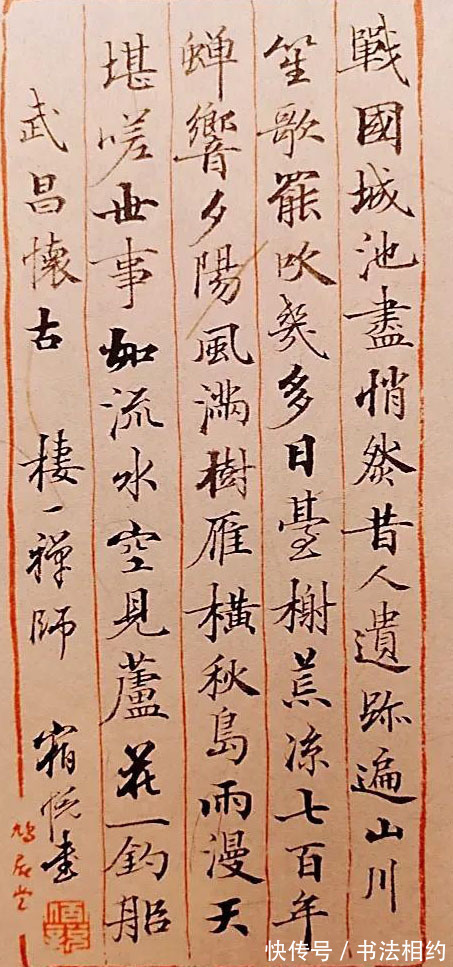 戰國城池盡悄然昔人遺跡遍山川
笙歌罷吹幾多日臺榭荒凉七百年
蟬響夕陽風滿樹雁橫秋島雨漫天
堪嗟世事如流水空見蘆花一釣船
武昌懷古 棲一禪師 宿悅書
鳩居堂
快传号 / 书法相约